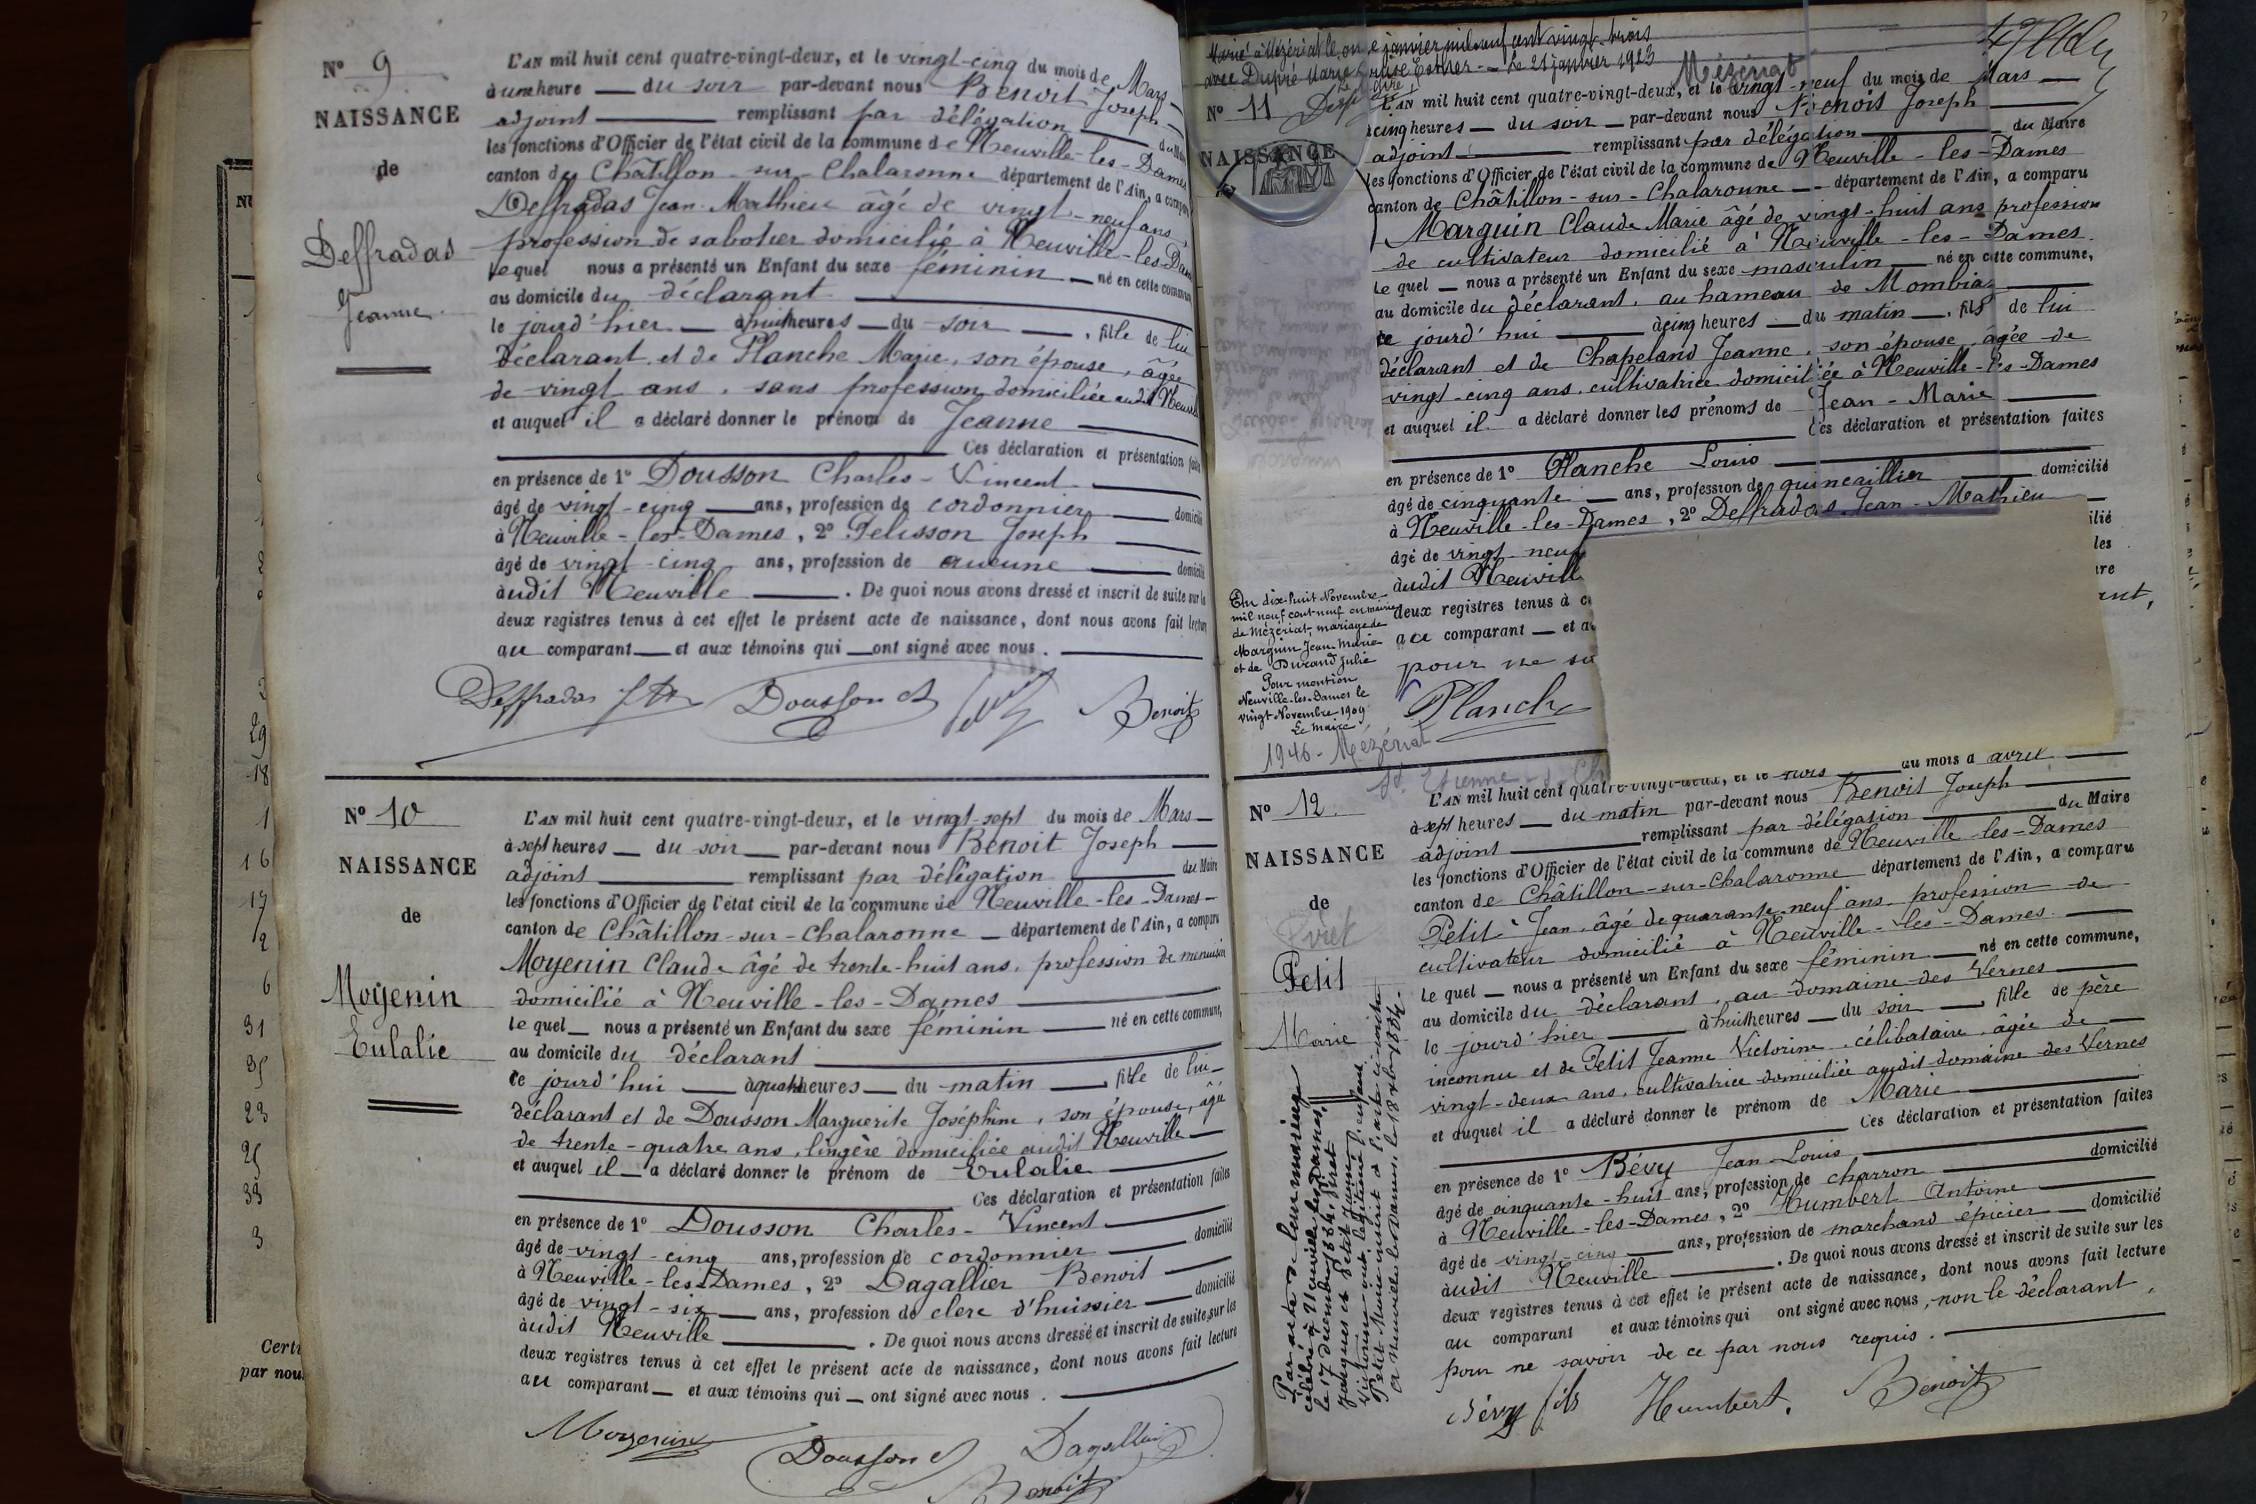 Nº 9
NAISSANCE
de
Deffradas
Jeanne
L'AN mil huit cent quatre-vingt-deux, et le vingt-cinq du mois de Mars
à une heure du soir par-devant nous Benoit Joseph
adjoint remplissant par délégation du Maire
les fonctions d'Officier de l'état civil de la commune de Neuville-les-Dames
canton de Châtillon-sur-Chalaronne département de l'Ain, a comparu
Deffradas Jean-Mathieu âgé de vingt-neuf ans,
profession de sabotier domicilié à Neuville-les-Dames
lequel nous a présenté un Enfant du sexe féminin né en cette commune,
au domicile du déclarant
le jour d'hier à huit heures du soir, fille de lui
déclarant et de Planche Marie, son épouse, âgée
de vingt ans, sans profession domiciliée audit Neuville
et auquel il a déclaré donner le prénom de Jeanne
Ces déclaration et présentation faites
en présence de 1º Dousson Charles-Vincent
âgé de vingt-cinq ans, profession de cordonnier domicilié
à Neuville-les-Dames, 2º Pelisson Joseph
âgé de vingt-cinq ans, profession de aucune domicilié
audit Neuville. De quoi nous avons dressé et inscrit de suite sur les
deux registres tenus à cet effet le présent acte de naissance, dont nous avons fait lecture
au comparant et aux témoins qui ont signé avec nous.
Deffradas Dousson Benoit
Nº 10
NAISSANCE
de
Moyenin
Eulalie
L'AN mil huit cent quatre-vingt-deux, et le vingt-sept du mois de Mars
à sept heures du soir par-devant nous Benoit Joseph
adjoint remplissant par délégation du Maire
les fonctions d'Officier de l'état civil de la commune de Neuville-les-Dames
canton de Châtillon-sur-Chalaronne département de l'Ain, a comparu
Moyenin Claude âgé de trente-huit ans, profession de menuisier
domicilié à Neuville-les-Dames
lequel nous a présenté un Enfant du sexe féminin né en cette commune,
au domicile du déclarant
ce jourd'hui à quatre heures du matin, fille de lui
déclarant et de Dousson Marguerite Joséphine, son épouse, âgée
de trente-quatre ans, lingère domiciliée audit Neuville
et auquel il a déclaré donner le prénom de Eulalie
Ces déclaration et présentation faites
en présence de 1º Dousson Charles-Vincent
âgé de vingt-cinq ans, profession de cordonnier domicilié
à Neuville-les-Dames, 2º Dagallier Benoit
âgé de vingt-six ans, profession de clerc d'huissier domicilié
audit Neuville. De quoi nous avons dressé et inscrit de suite sur les
deux registres tenus à cet effet le présent acte de naissance, dont nous avons fait lecture
au comparant et aux témoins qui ont signé avec nous.
Moyenin Dousson Dagallier
Benoit
Marié à Mézériat le onze janvier mil neuf cent vingt-trois
avec Dupré Marie Louise Esther - Le 21 janvier 1923
Mézériat
Nº 11
NAISSANCE
L'AN mil huit cent quatre-vingt-deux, et le vingt-neuf du mois de Mars
à cinq heures du soir par-devant nous Benoit Joseph
adjoint remplissant par délégation du Maire
les fonctions d'Officier de l'état civil de la commune de Neuville-les-Dames
canton de Châtillon-sur-Chalaronne département de l'Ain, a comparu
Marguin Claude Marie âgé de vingt-huit ans profession
de cultivateur domicilié à Neuville-les-Dames
lequel nous a présenté un Enfant du sexe masculin né en cette commune,
au domicile du déclarant, au hameau de Mombiaz
ce jourd'hui à cinq heures du matin, fils de lui
déclarant et de Chapeland Jeanne, son épouse, âgée de
vingt-cinq ans, cultivatrice domiciliée à Neuville-les-Dames
et auquel il a déclaré donner les prénoms de Jean-Marie
Ces déclaration et présentation faites
en présence de 1º Planche Louis
âgé de cinquante ans, profession de quincaillier domicilié
à Neuville-les-Dames, 2º Deffradas Jean-Mathieu
âgé de vingt-neuf
audit Neuville
deux registres tenus à c
au comparant et a
pour ne sa
Planche
En dix-huit Novembre
mil neuf cent neuf en mairie
de Mézériat, mariage de
Marguin Jean Marie
et de Durand Julie
Pour mention
Neuville-les-Dames le
vingt Novembre 1909
Le Maire
1946 - Mézériat
St Etienne s. Ch
Nº 12
NAISSANCE
de
Petit
Marie
L'AN mil huit cent quatre-vingt-deux, et le trois du mois d avril
à sept heures du matin par-devant nous Benoit Joseph
adjoint remplissant par délégation du Maire
les fonctions d'Officier de l'état civil de la commune de Neuville-les-Dames
canton de Châtillon-sur-Chalaronne département de l'Ain, a comparu
Petit Jean, âgé de quarante-neuf ans profession de
cultivateur domicilié à Neuville-les-Dames
lequel nous a présenté un Enfant du sexe féminin né en cette commune,
au domicile du déclarant, au domaine des Vernes
le jourd'hier à huit heures du soir, fille de père
inconnu et de Petit Jeanne Victorine, célibataire, âgée de
vingt-deux ans, cultivatrice domiciliée audit domaine des Vernes
et auquel il a déclaré donner le prénom de Marie
Ces déclaration et présentation faites
en présence de 1º Bévy Jean-Louis
âgé de cinquante-huit ans, profession de charron domicilié
à Neuville-les-Dames, 2º Humbert Antoine
âgé de vingt-cinq ans, profession de marchand épicier domicilié
audit Neuville. De quoi nous avons dressé et inscrit de suite sur les
deux registres tenus à cet effet le présent acte de naissance, dont nous avons fait lecture
au comparant et aux témoins qui ont signé avec nous, non le déclarant,
pour ne savoir de ce par nous requis.
Bévy fils Humbert Benoit
Par acte de leur mariage
célébré à Neuville-les-Dames,
le 17 décembre 1884,
Jacques et Petit Jeanne
Victorine ont légitimé l'enfant
Petit Marie
Certi
par nou